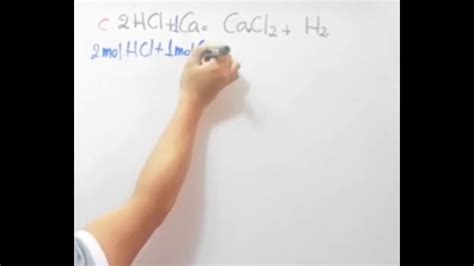 c 2HCl+1Ca= CaCl₂+ H₂
2mol HCl+1mol